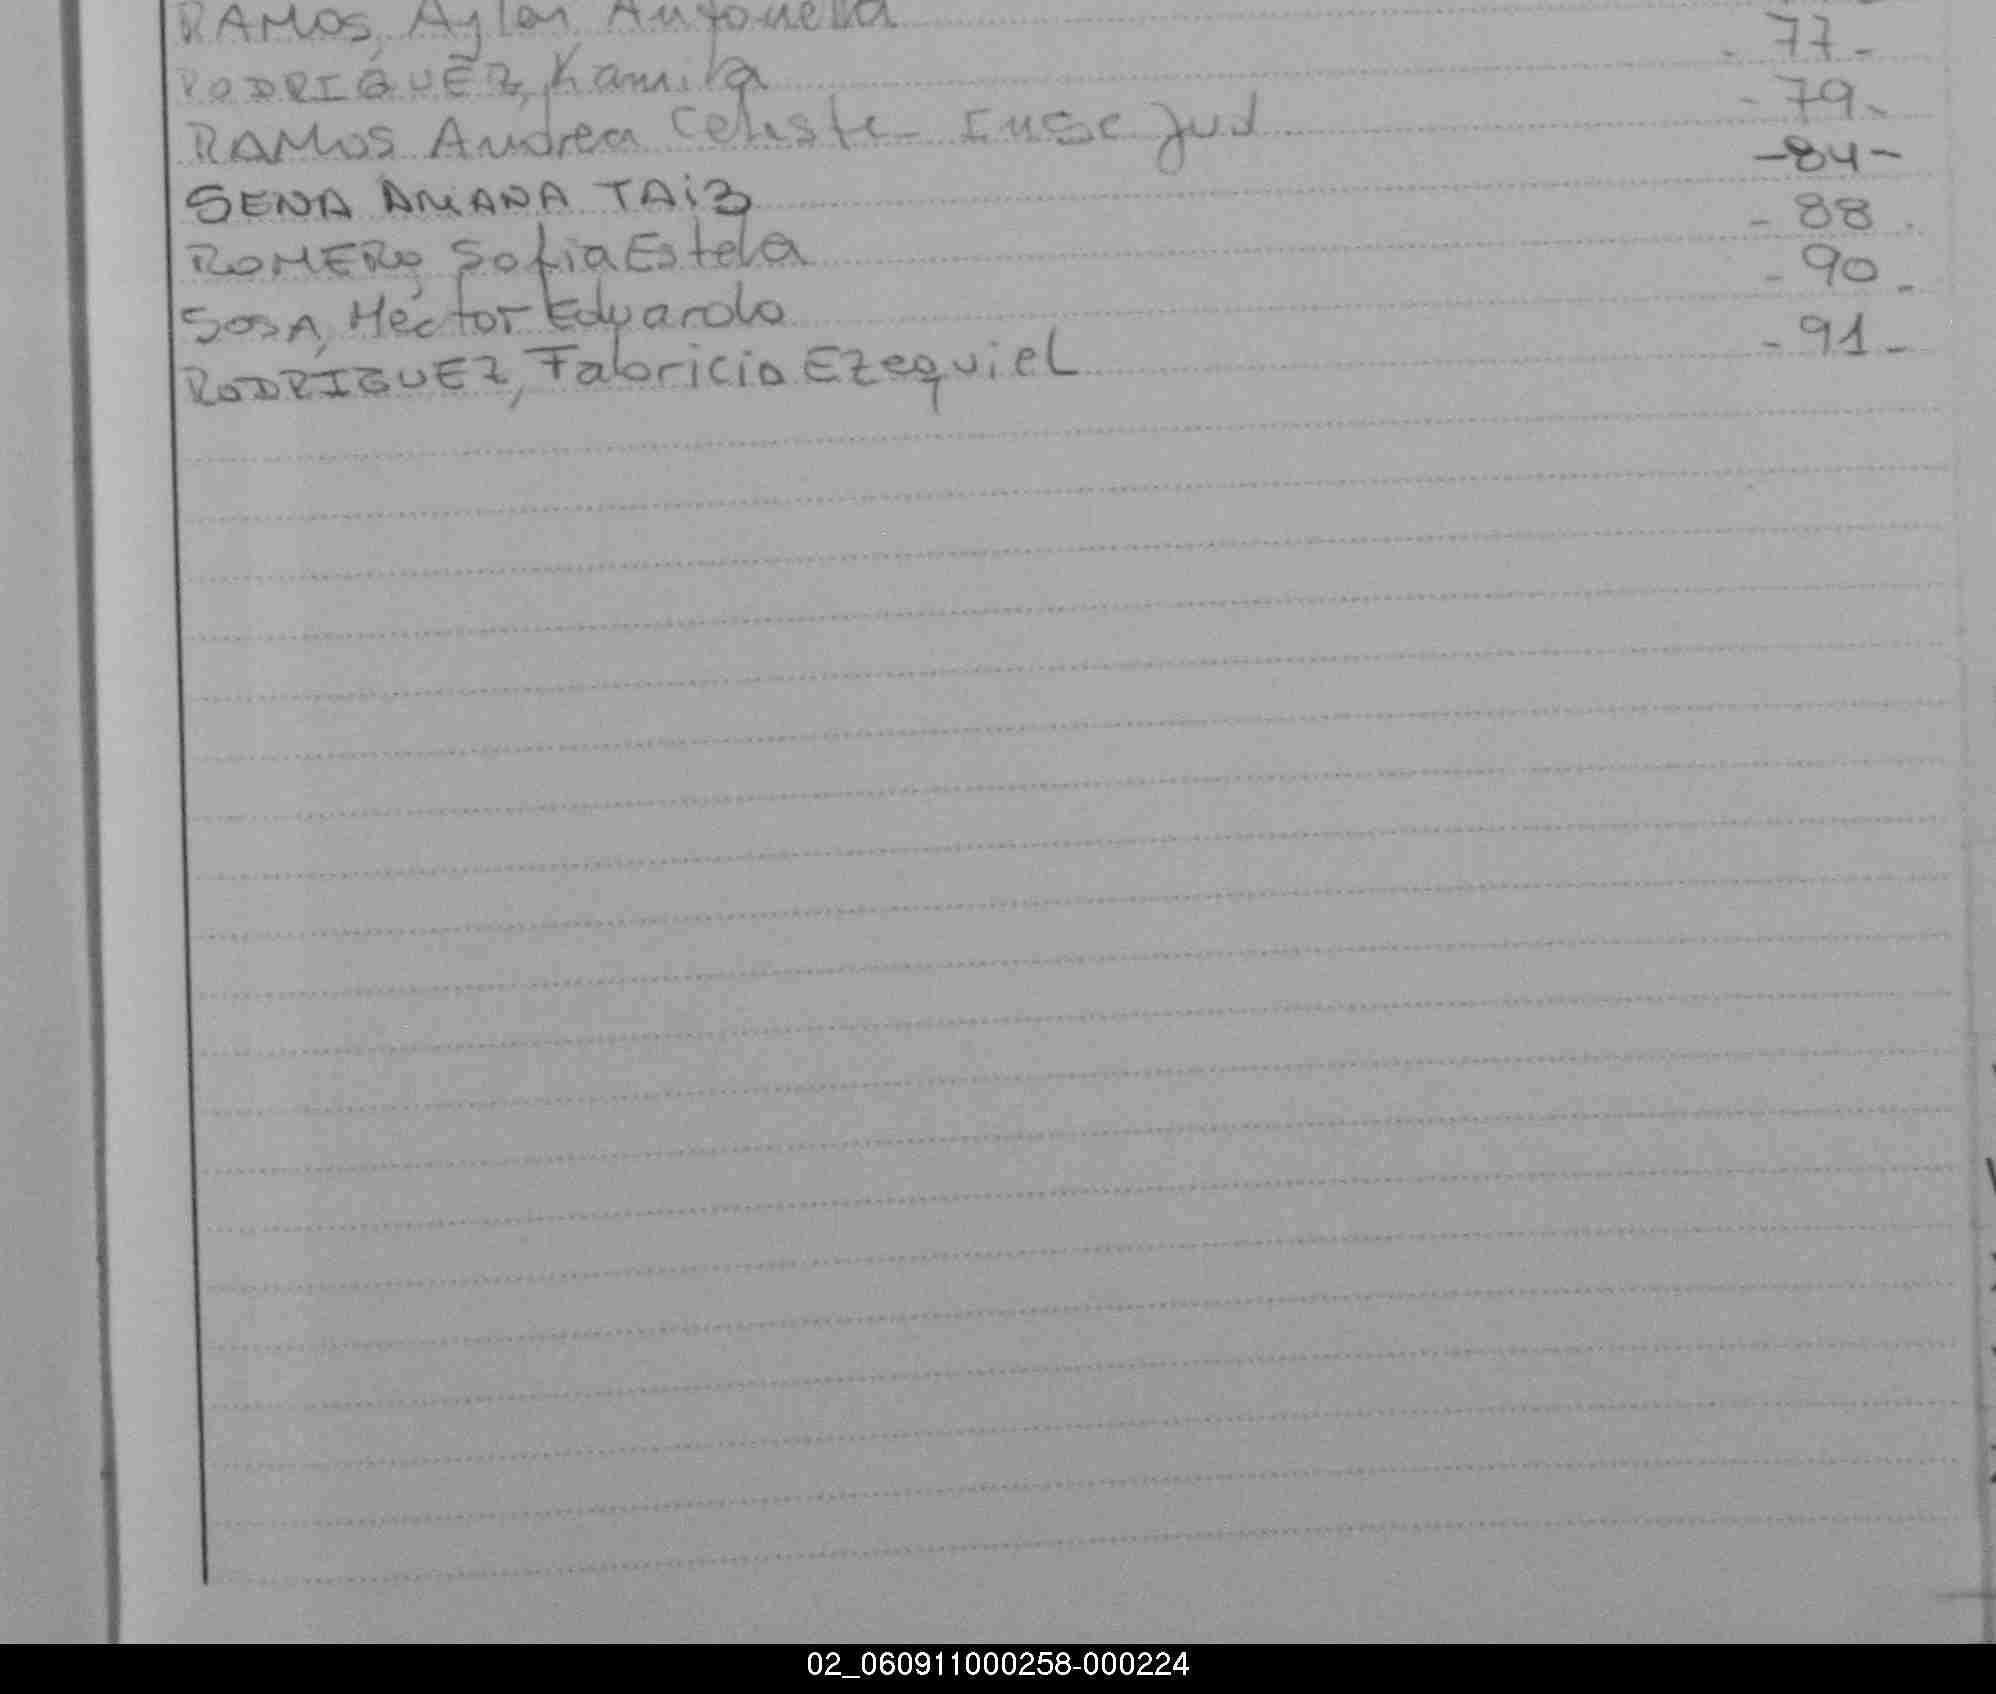 RAMOS, Aylen Antonella
RODRIGUEZ, Kamila - 77 -
RAMOS Andrea Celeste - Insc Jud - 79 -
SENA AMANA TAIZ - 84 -
ROMERO, Sofia Estela - 88 -
SOSA, Héctor Eduardo - 90 -
RODRIGUEZ, Fabricio Ezequiel - 91 -
02_060911000258-000224